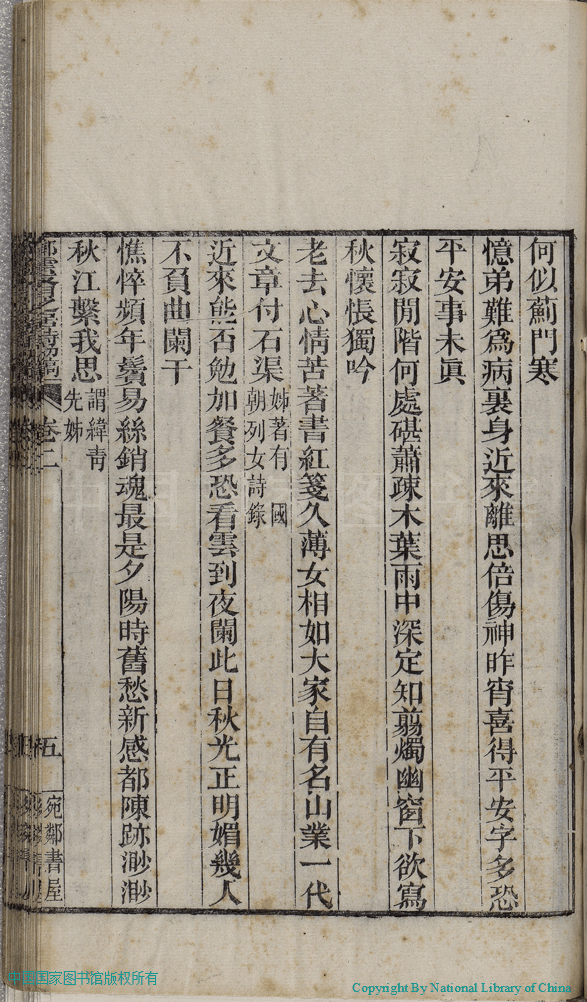 何似薊門寒
憶弟難爲病裏身近來離思倍傷神昨宵喜得平安字多恐
平安事未眞
寂寂閒階何處碪蕭疎木葉雨中深定知翦燭幽窗下欲寫
秋懷悵獨吟
老去心情苦著書紅箋久薄女相如大家自有名山業一代
文章付石渠姊著有國朝列女詩錄
近來熊否勉加餐多恐看雲到夜闌此日秋光正明媚幾人
不負曲闌干
憔悴頻年鬢易絲銷魂最是夕陽時舊愁新感都陳跡渺渺
秋江繫我思謂緯青先姊
卷二
五
宛鄰書屋
中国国家图书馆版权所有
Copyright By National Library of China